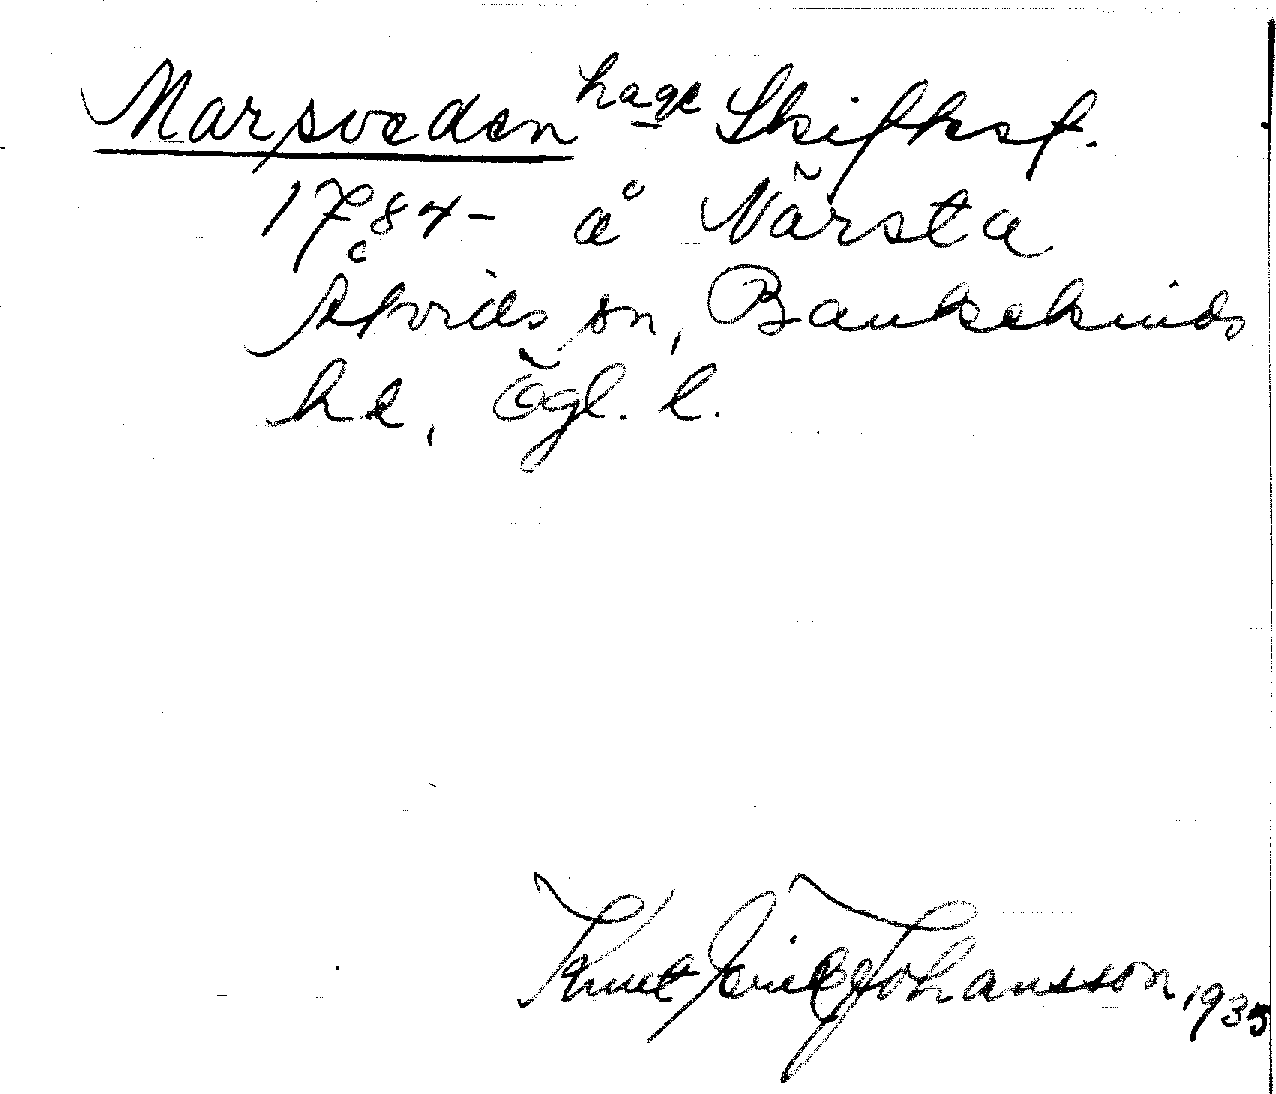 Marsveden hage Skifksf.
1784 - å Närsta
Åtvids sn, Bankekinds
hd, Ögl. l.
Knut Eric Johansson 1935